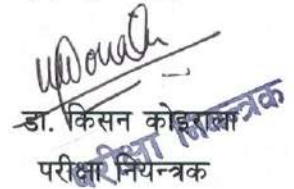 डा. किसन कोइराला
परीक्षा नियन्त्रक
परीक्षा नियन्त्रक